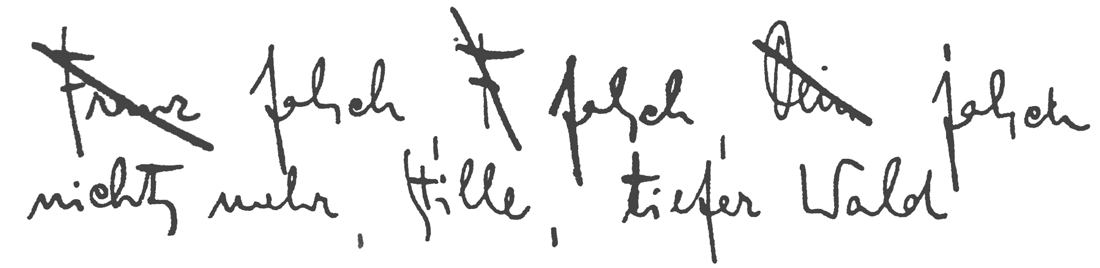 Franz falsch F falsch Dein falsch
nichts mehr, Stille, tiefer Wald